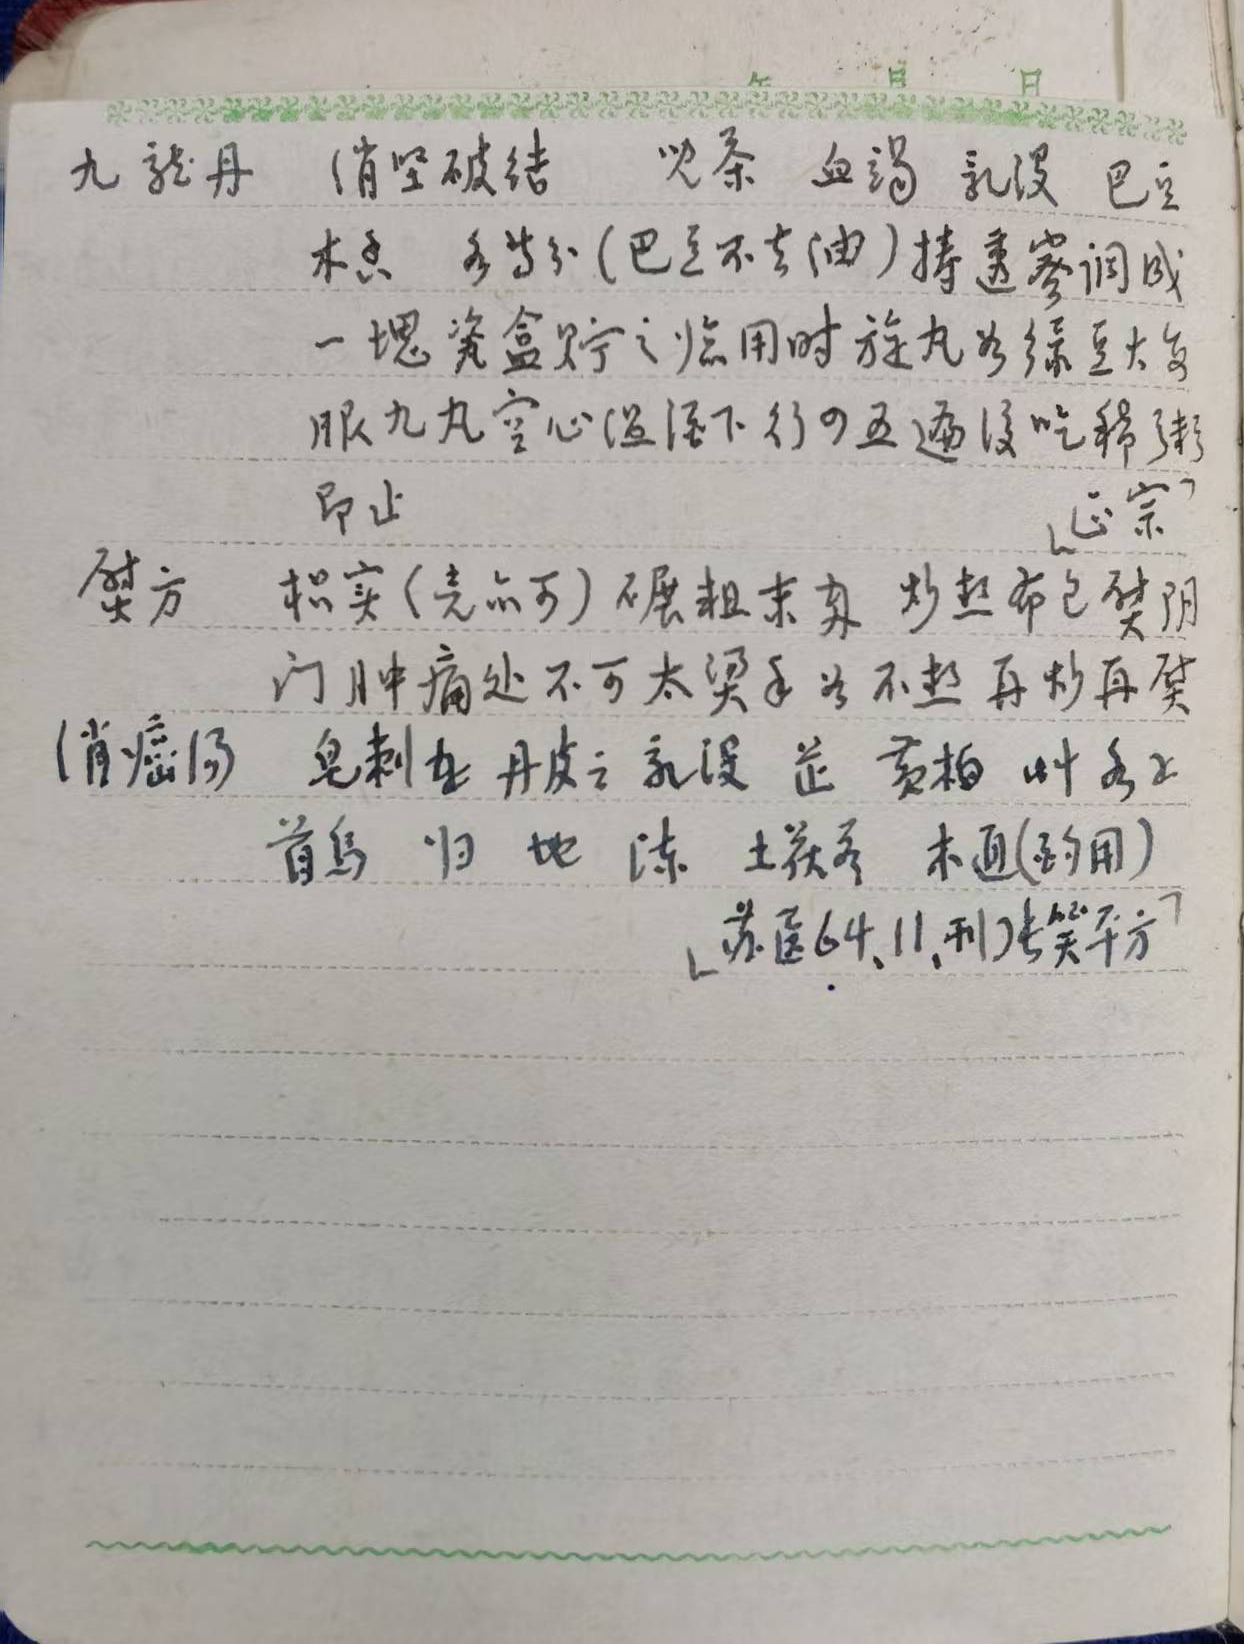 年 月 日
九龙丹 消坚破结 儿茶 血竭 乳没 巴豆
木香 各等分(巴豆不去油)捣透蜜调成
一块瓷盒贮之临用时旋丸如绿豆大每
服九丸空心温酒下行四五遍后吃稀粥
即止 「正宗」
熨方 枳实(壳亦可)碾粗末 炒热布包熨阴
门肿痛处不可太烫手如不热再炒再熨
消 汤 皂刺 丹皮 乳没 芷 黄柏 叶 各
首乌 归 地 土茯苓 木通(酌用)
「苏医64、11、刊 平方」